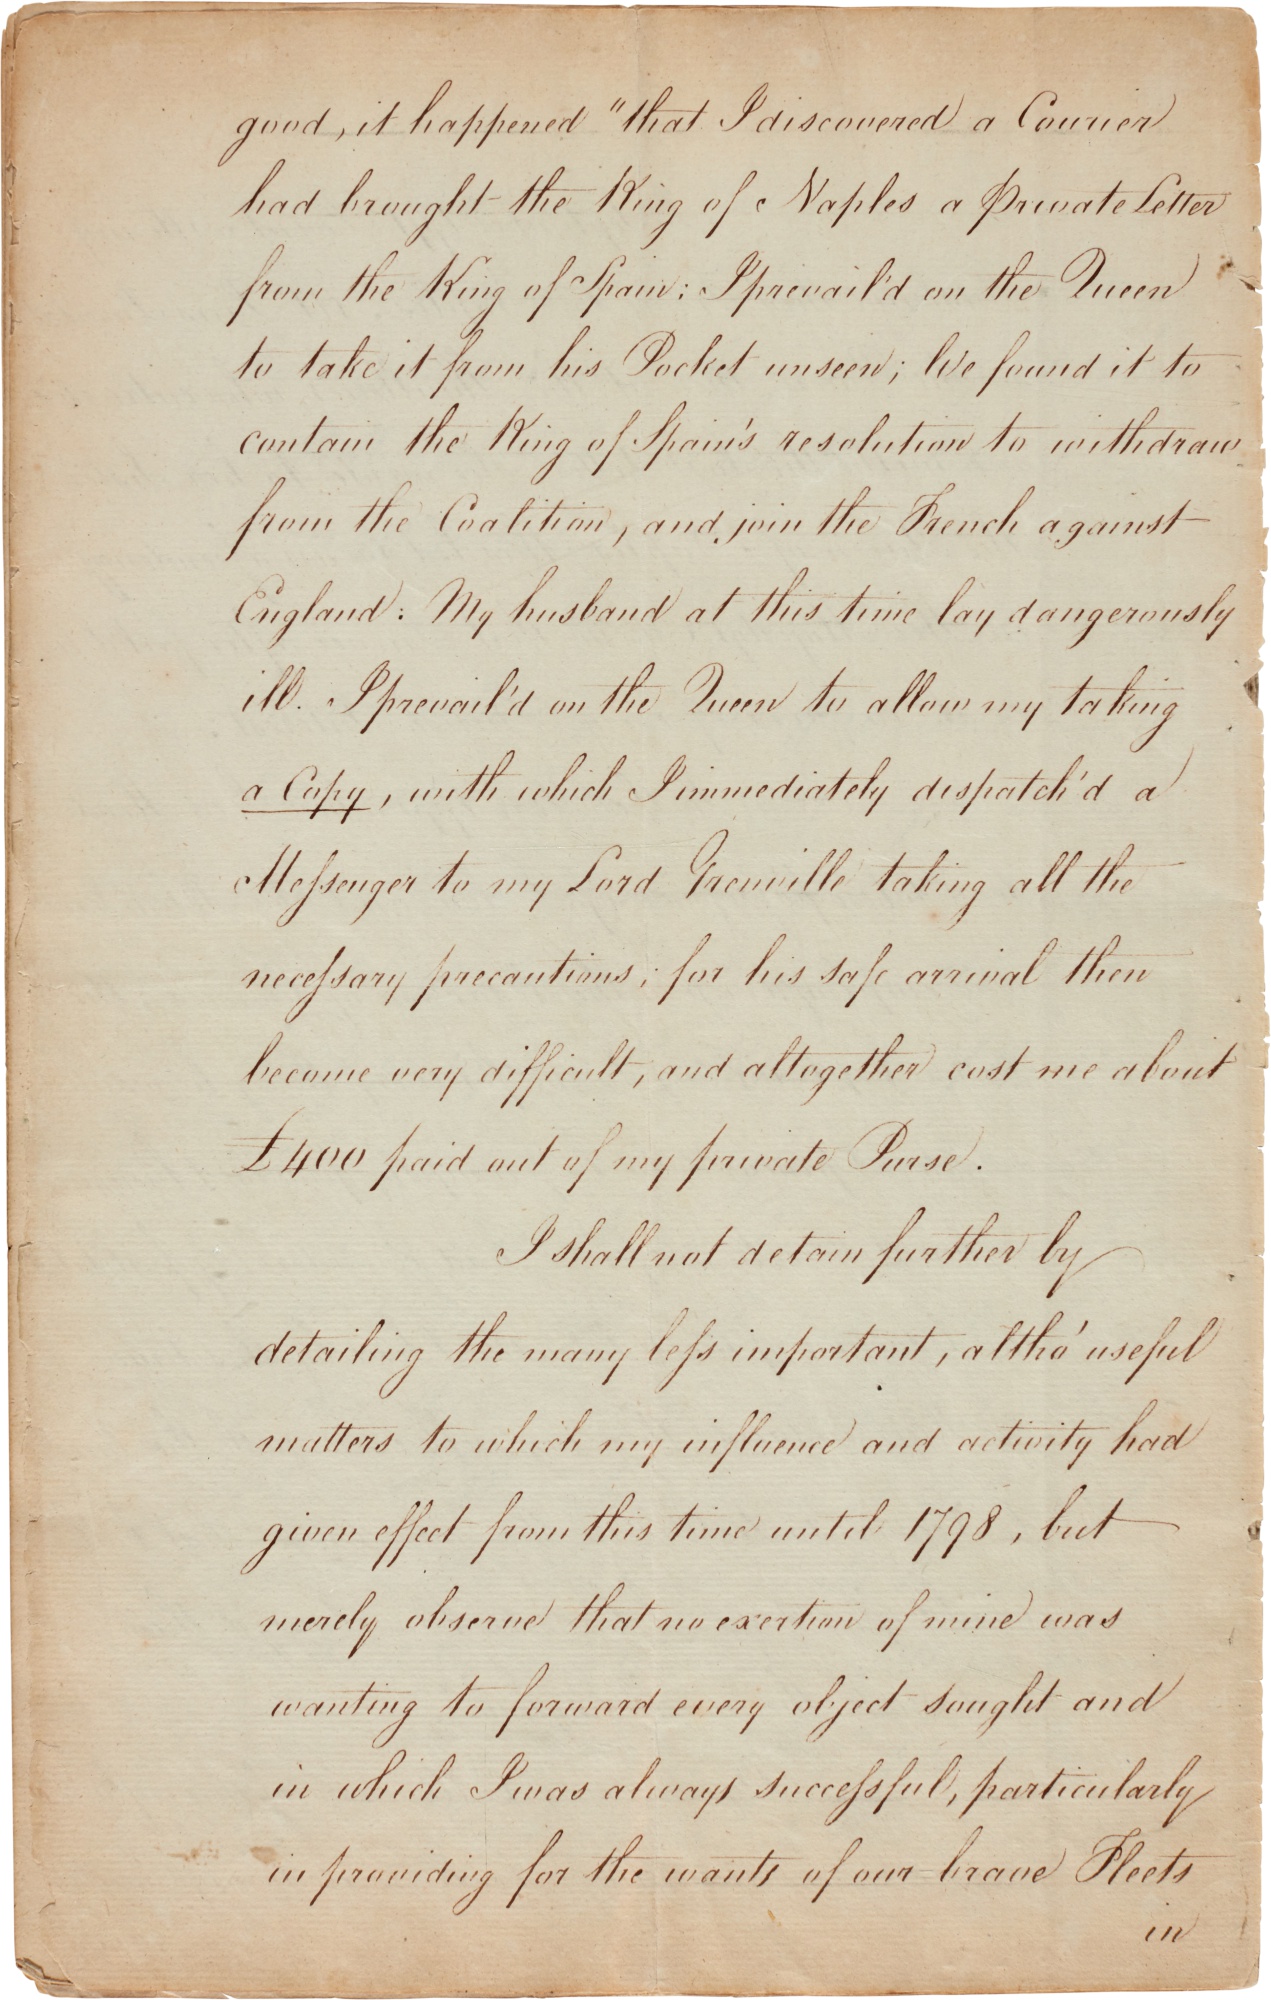 good, it happened "that I discovered a Courier
had brought the King of Naples a Private Letter
from the King of Spain: I prevail'd on the Queen
to take it from his Pocket unseen; We found it to
contain the King of Spain's resolution to withdraw
from the Coalition, and join the French against
England: My husband at this time lay dangerously
ill. I prevail'd on the Queen to allow my taking
a Copy, with which I immediately dispatch'd a
Meſsenger to my Lord Grenville taking all the
neceſsary precautions; for his safe arrival then
become very difficult, and altogether cost me about
£400 paid out of my private Purse.
I shall not detain further by
detailing the many leſs important, altho' useful
matters to which my influence and activity had
given effect from this time until 1798, but
merely observe that no exertion of mine was
wanting to forward every object sought and
in which I was always succeſsful, particularly
in providing for the wants of our brave Fleets
in